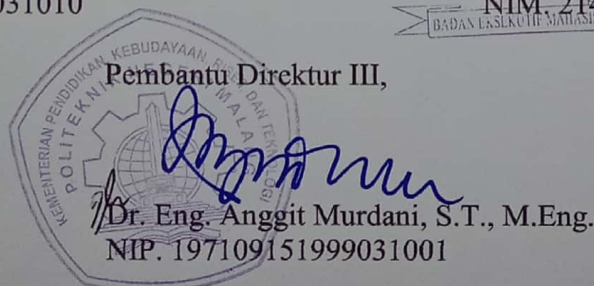 031010
NIM. 214
BADAN EKSEKUTIF MAHASIS
KEMENTERIAN PENDIDIKAN, KEBUDAYAAN, RISET, DAN TEKNOLOGI
POLITEKNIK NEGERI MALANG
Pembantu Direktur III,
Dr. Eng. Anggit Murdani, S.T., M.Eng.
NIP. 197109151999031001